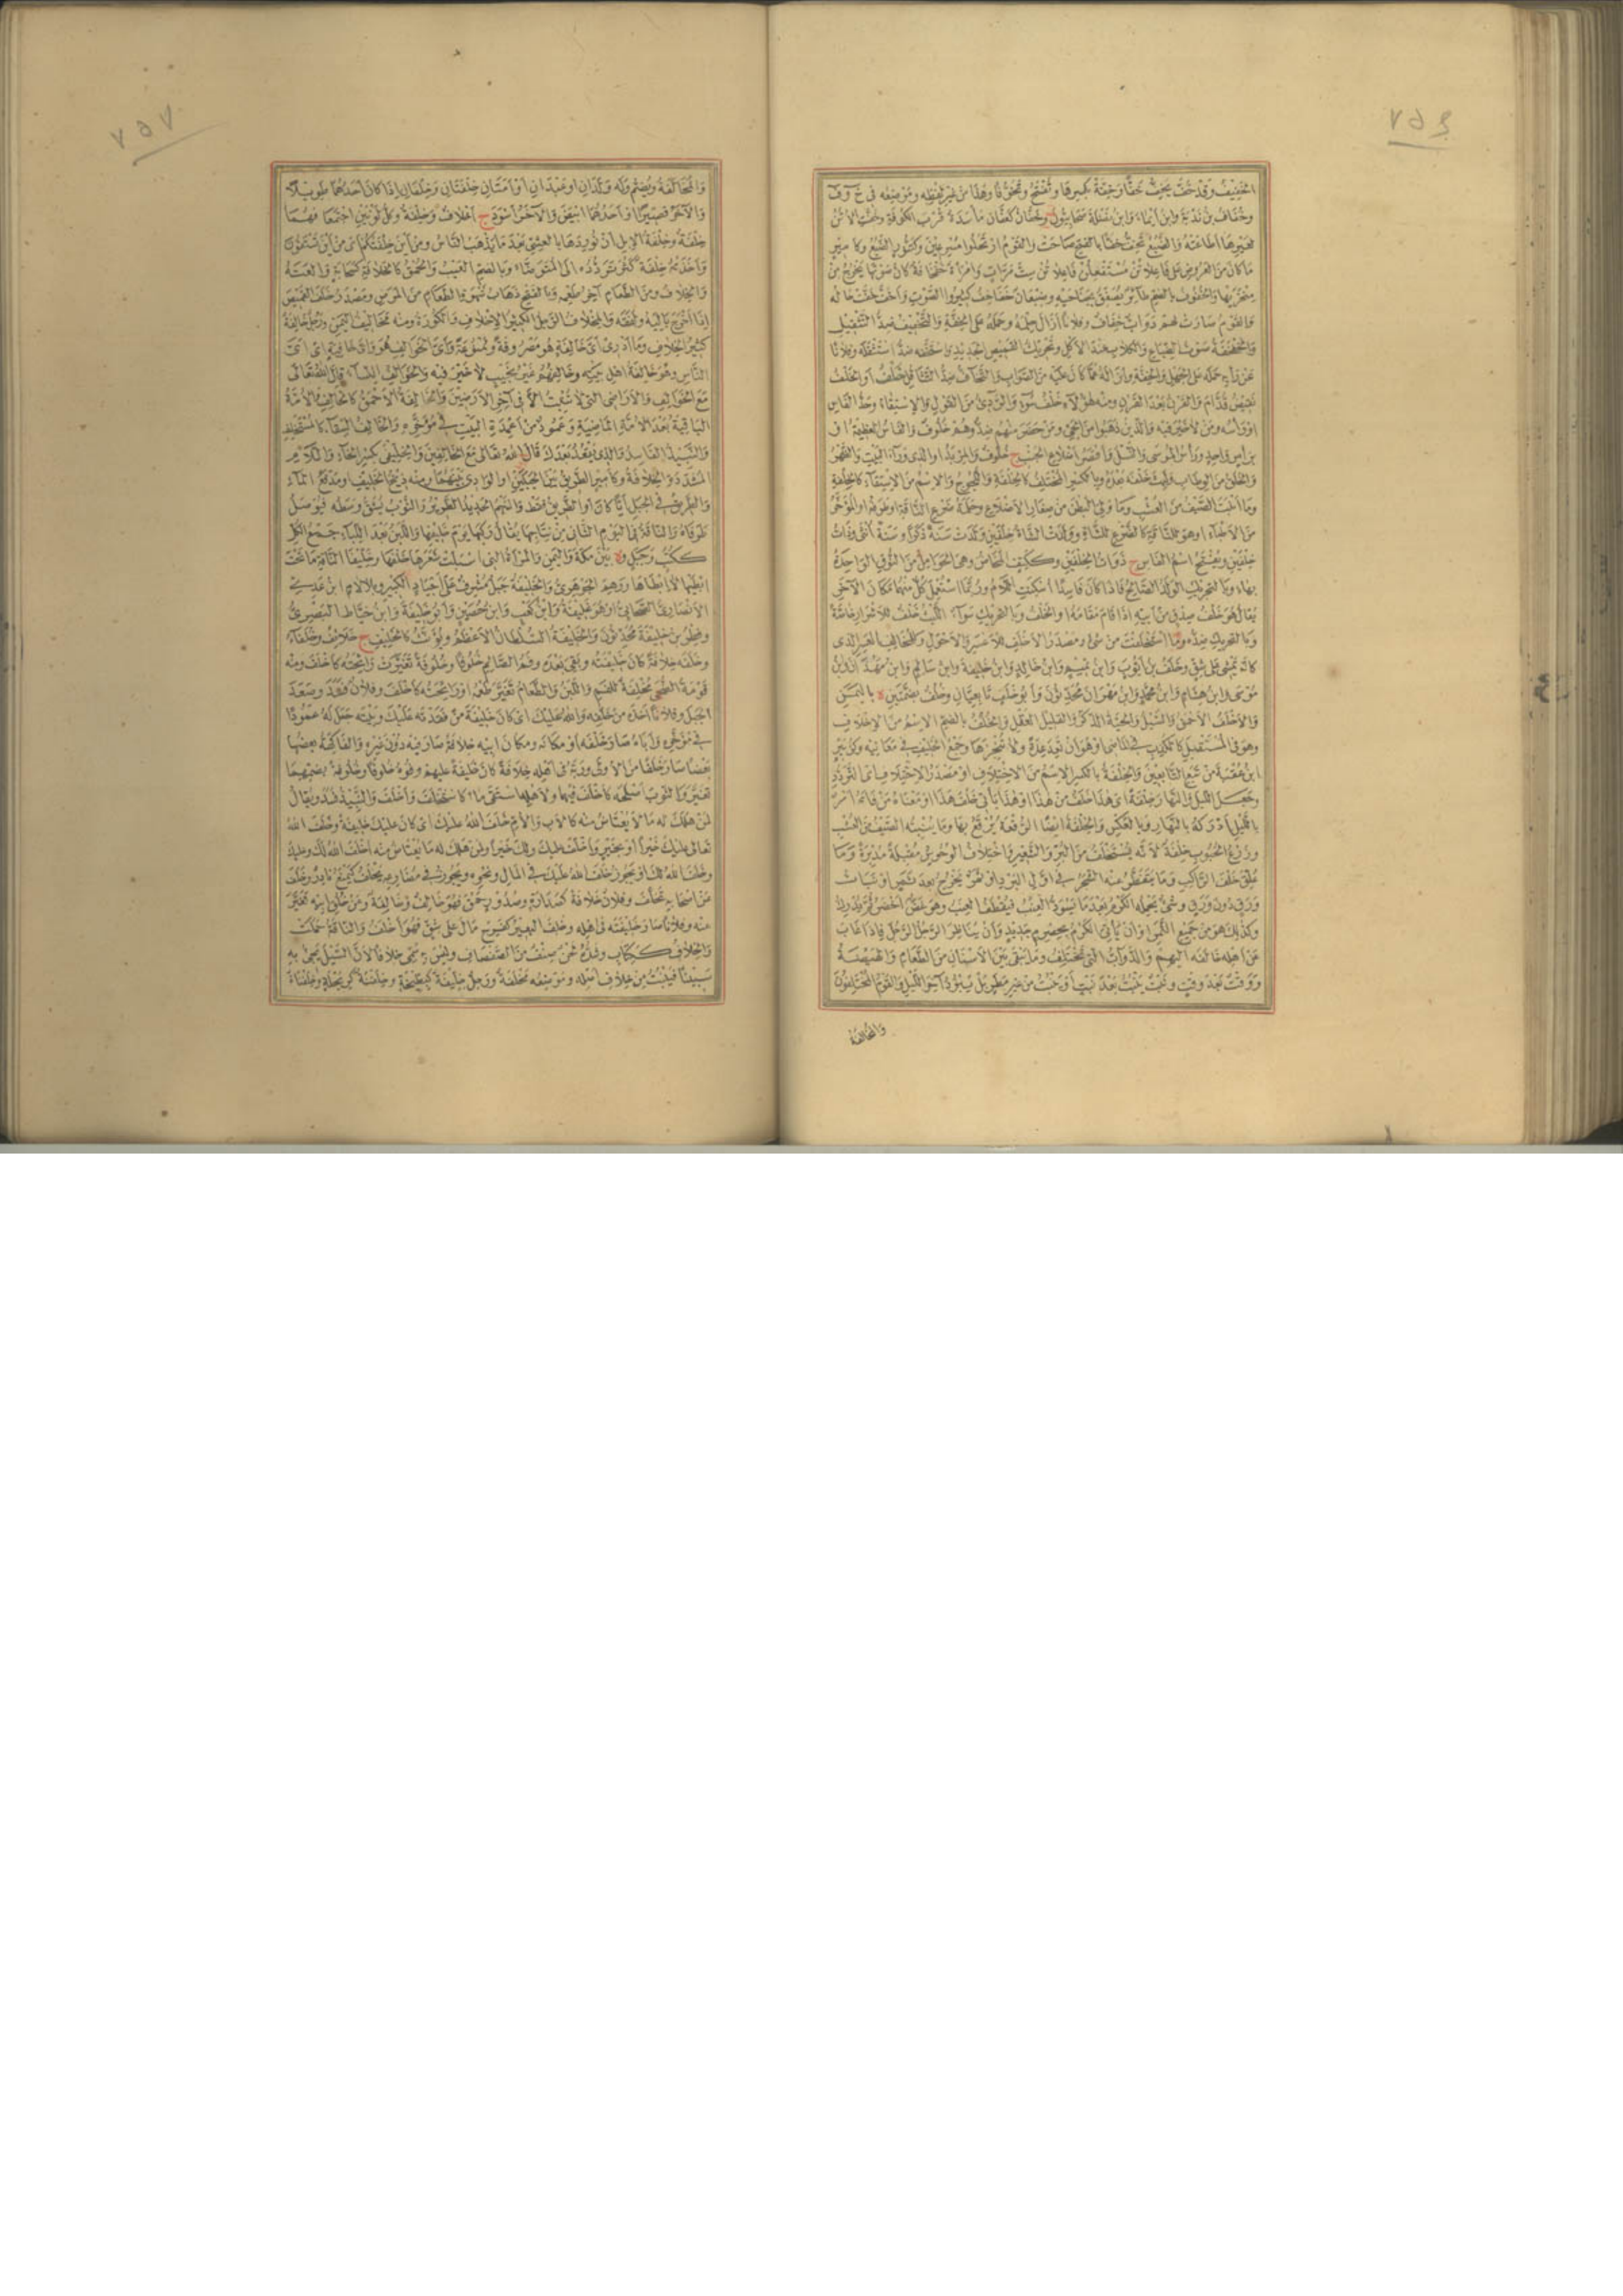 وخفاف بن ندبة وابن ايماء وابن نضلة صحابيون وخفان كعفان مأسدة قرب الكوفة وخفت الاتن
لعيرها اطاعته والضبع تخف خفا بالفتح صاحت والقوم ارتحلوا مسرعين
ما كان من العروض على فاعلاتن مستفعلن فاعلاتن ست مرات وامرأة خفخافة كان صوتها يخرج من
منخريها والخفخوف بالضم طائر يصفق بجناحيه وضبعان خفاخف كثيروا الصوت واخف خفت حاله
والقوم صارت لهم دواب خفاف وفلانا ازال حلمه وحمله على الخفة والتخفيف ضد التثقيل
والخفخفة صوت الضباع والكلاب عند الاكل وتحريك القميص الجديد واستخفه ضد استثقله وفلانا
عن رأيه حمله على الجهل والخفة وازاله عما كان عليه من الصواب والتخاف ضد التثاقل خلف او الخلف
نقيض قدام والقرن بعد القرن ومنه هؤلاء خلف سوء والردئ من القول والاستقاء وحد الفاس
او رأسه ومن لا خير فيه والذين ذهبوا من الحي ومن حضر منهم ضد وهم خلوف والفاس العظيمة او
برأس واحد ورأس الموسى والنسل واقصر اضلاع الجنب ج خلوف والمربد او الذي وراء البيت والظهر
والخلق من الوطاب ولبث خلفه بعده وبالكسر المختلف كالخلفة واللجوج والاسم من الاستقاء كالخلفة
وما انبت الصيف من العشب وما ولي البطن من صغار الاضلاع وحلمة ضرع الناقة او طرفه او المؤخر
من الاطباء او هو للناقة كالضرع للشاة وولدت الشاة خلفين ولدت سنة ذكرا وسنة انثى وذات
خلفين ويفتح اسم الفاس ج ذوات الخلفين وككتف المخاض وهي الحوامل من النوق الواحدة
بهاء وبالتحريك الولد الصالح فاذا كان فاسدا اسكنت اللام وربما استعمل كل منهما مكان الاخر
يقال هو خلف صدق من ابيه اذا قام مقامه او الخلف وبالتحريك سواء الليث خلف للاشرار خاصة
وبالتحريك ضده وما استخلفت من شئ ومصدر الاخلف للاعسر والاحول وللمخالف العسر الذي
كأنه يمشي على شق وخلف بن ايوب وابن تميم وابن خالد وابن خليفة وابن سالم وابن مهدان
موسى وابن هشام وابن محمد وابن مهران محدثون وابو خلف تابعيان وخلف بضمتين ة باليمن
والاخلف الاحمق والسيل والحية الذكر والقليل العقل والخلف بالضم الاسم من الاخلاف
وهو في المستقبل كالكذب في الماضي او هو ان تعد عدة ولا تنجزها وجمع الخليف في معانيه وكزبير
ابن عقبة من تبع التابعين والخلفة بالكسر الاسم من الاختلاف او مصدر الاختلاف اي التردد
وجعل الليل والنهار خلفة اي هذا خلف من هذا او هذا يأتي خلف هذا او معناه من فاته امر
بالليل ادركه بالنهار وبالعكس والخلفة ايضا الرقعة يرقع بها وما ينبته الصيف من العشب
وزرع الحبوب خلفة لانه يستخلف من البر والشعير واختلاف الوحوش مقبلة مدبرة وما
علق خلف الراكب وما يتفطر عنه الشجر في اول البرد او ثمر يخرج بعد ثمر او نبات
ورق دون ورق وشئ يحمله الكرم بعد ما يسود العنب فيقطف العنب وهو غض اخضر ثم يدرك
وكذلك هو من جميع الثمر او ان يأتي الكرم بحصرم جديد وان يناظر الرجل الرجل فاذا غاب
عن اهله خالفه اليهم والدواب التي تختلف وما يبقى بين الاسنان من الطعام والهيضة
ووقت بعد وقت ونبت ينبت بعد نبت او نبت من غير مطر بل ببرد آخر الليل والقوم المختلفون
والمخالفة
والمخالفة ويضم وله ولدان او عبدان او امتان خلفتان وخلفان اذا كان احدهما طويلا
والاخر قصيرا او احدهما ابيض والاخر اسود ج اخلاف وخلفة وكل لونين اجتمعا فهما
خلفة وخلفة الابل ان توردها بالعشي بعد ما يذهب الناس ومن اين خلفتكم اي من اين تستقون
واخذته خلفة كثر تردده الى المتوضأ وبالضم العيب والحمق كالخلافة كسحابة والعته
والخلاف ومن الطعام آخر طعمه وبالفتح ذهاب شهوة الطعام من المرض ومصدر خلف القميص
اذا اخرج باليه ولفقه والمخلاف الرجل الكثير الاخلاف والكورة ومنه مخاليف اليمن ورجل خالفة
كثير الخلاف وما ادري اي خالفة هو مصروفة وممنوعة واي الخوالف هو واي خافية اي اي
الناس وهو خالفة اهل بيته وخالفهم غير نجيب لا خير فيه والخوالف النساء قال الله تعالى
مع الخوالف والاراضي التي لا تنبت الا في آخر الارضين والخالفة الاحمق كالخالف والامة
الباقية بعد الامة الماضية وعمود من اعمدة البيت في مؤخره والخالف السقاء كالمستخلف
والنبيذ الفاسد والذي يقعد بعدك قال الله تعالى مع الخالفين والخليفى بكسر الخاء واللام
المشددة الخلافة وكامير الطريق بين الجبلين او الوادي بينهما ومنه ذيخ الخليف او مدفع الماء
والطريق في الجبل ايا كان او الطريق فقط والسهم الحديد الطرير والثوب يشق وسطه فيوصل
طرفاه والناقة في اليوم الثاني من نتاجها يقال ركبها يوم خليفها واللبن بعد اللباء جمع الكل
ككتب وجبل وة بين مكة واليمن والمرأة التي اسبلت شعرها خلفها وخليفا الناقة ما تحت
ابطيها لا ابطاها ووهم الجوهري والخليفة جبل مشرف على اجياد الكبير وبلا لام ابن عدي
الانصاري الصحابي او هو عليفة وابن كعب وابن حصين وابو خليفة وابن خياط البصري
وفطر بن خليفة محدثون والخليفة السلطان الاعظم ويؤنث كالخليف ج خلائف وخلفاء
وخلفه خلافة كان خليفته وبقي بعده وفم الصائم خلوفا وخلوفة تغيرت رائحته كاخلف ومنه
نومة الضحى مخلفة للفم واللبن والطعام تغير طعمه او رائحته كاخلف وفلان فسد وصعد
الجبل وفلانا اخذه من خلفه والله عليك اي كان خليفة من فقدته عليك وبيته جعل له عمودا
في مؤخره واباه صار خلفه او مكانه ومكان ابيه خلافة صار فيه دون غيره والفاكهة بعضها
بعضا صارت خلفا من الاولى وربه في اهله خلافة كان خليفة عليهم وفوه خلوفا وخلوفة بضمهما
تغير والثوب اصلحه كاخلف فيهما ولاهله استقى ماء كاستخلف واخلف والنبيذ فسد ويقال
لمن هلك له ما لا يعتاض منه كالاب والام خلف الله عليك اي كان عليك خليفة وخلف الله
تعالى عليك خيرا او بخير واخلف عليك ولك خيرا ولمن هلك له ما يعتاض منه اخلف الله لك وعليك
وخلف الله لك او يجوز خلف الله عليك في المال ونحوه ويجوز في مضارعه يخلف كيمنع نادر وخلف
عن اصحابه تخلف وفلان خلافة كصدارة وصدور حمق فهو خالف وخالفة وعن خلق ابيه تغير
منه وفلانا صار خليفته في اهله وخلف البعير كفرح مال على شق فهو اخلف والناقة حملت
والخلاف ككتاب وشده لحن صنف من الصفصاف وليس به سمي خلافا لان السيل يجئ به
سبيا فينبت من خلاف اصله وموضعه مخلفة ورجل خليفة كبطيخة وخلفنة كربحلة وخلفناة